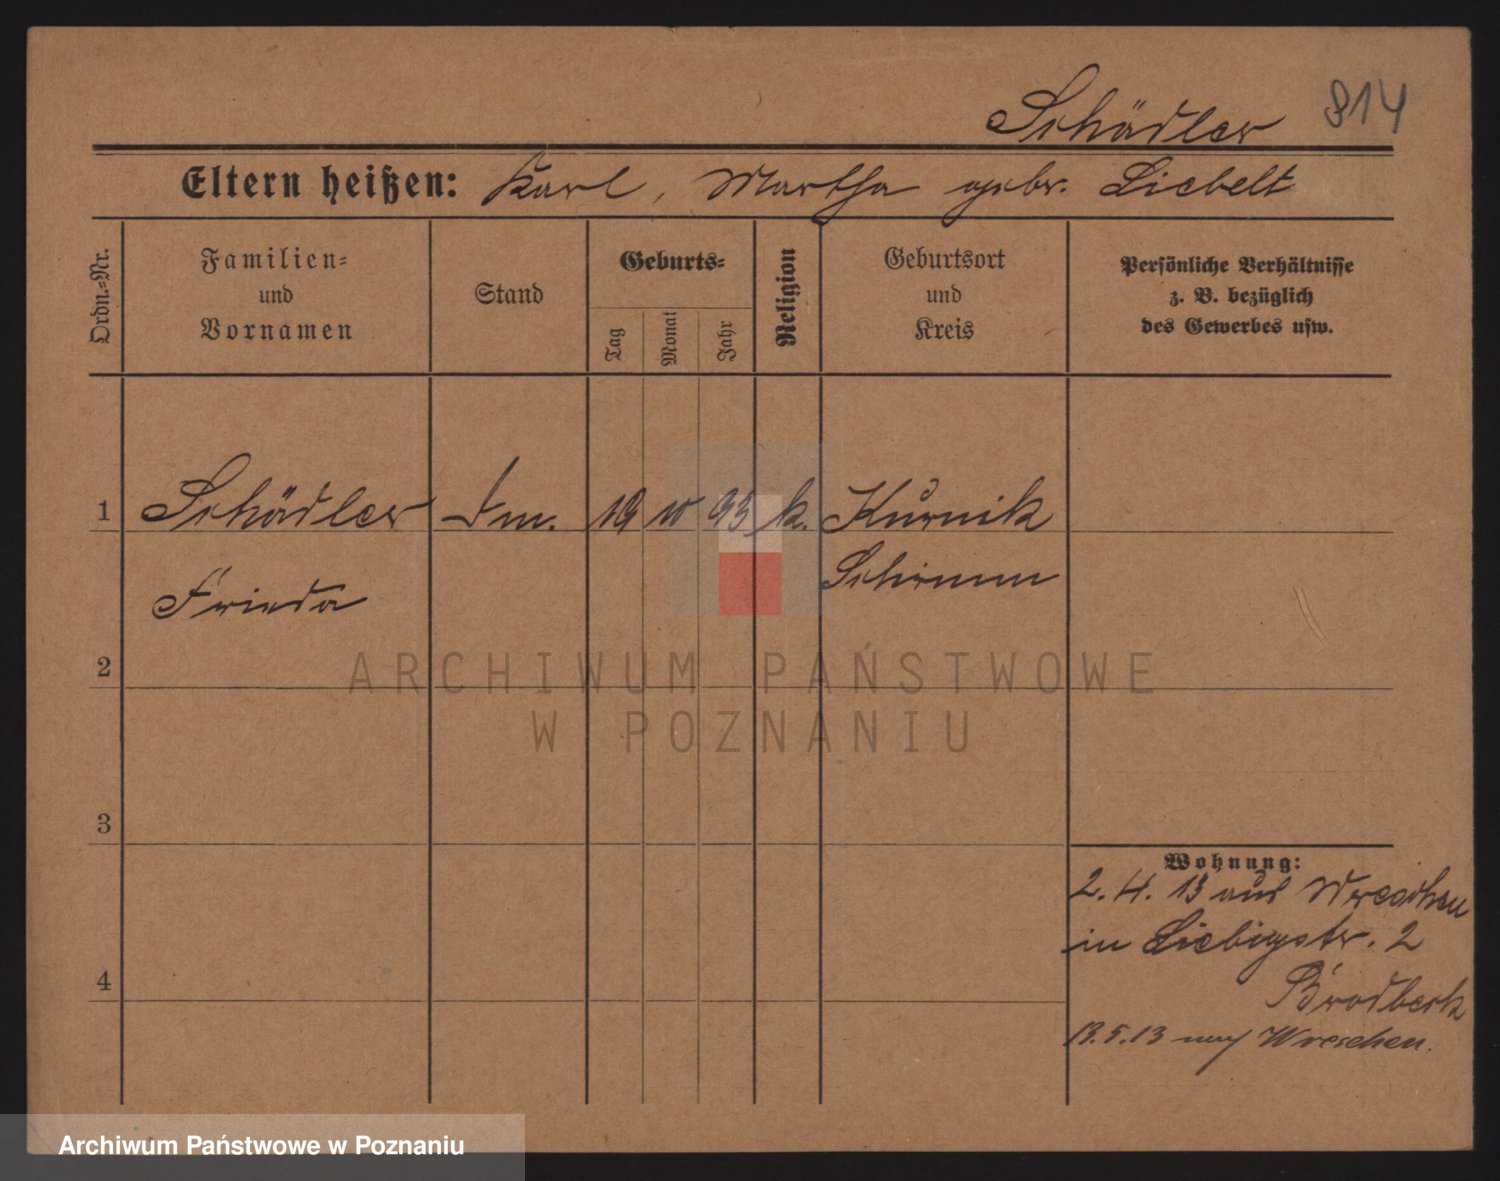 Schädler 814
Eltern heißen: Karl, Martha gebr. Liebelt
Ordn.-Nr.
Familien-
und
Vornamen
Stand
Geburts-
Tag
Monat
Jahr
Religion
Geburtsort
und
Kreis
Persönliche Verhältnisse
z. B. bezüglich
des Gewerbes usw.
1 Schädler 19 10 93 k. Kurnik
Frieda Schrimm
2
3
4
Wohnung:
2. 4. 13 aus Wreschen
in Liebigstr. 2
Brodbeck
13.5.13 nach Wreschen.
ARCHIWUM PAŃSTWOWE
W POZNANIU
Archiwum Państwowe w Poznaniu